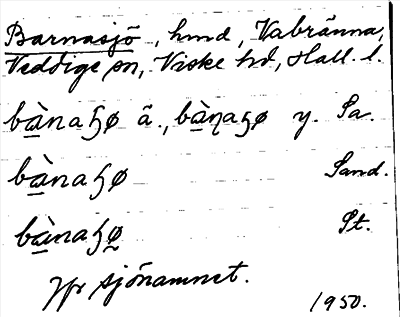 Barnasjö, hmd, Vabränna,
Veddige sn, Viske hd, Hall. l.
bànaɧø ä., bàṇaɧø y. Sa.
bànaɧø Sand.
bànaɧø̰ St.
Jfr sjönamnet.
1950.